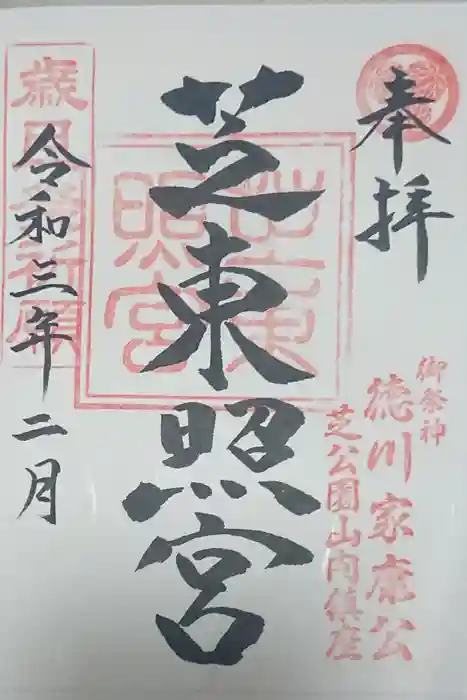 奉拝
御祭神
徳川家康公
芝公園山内鎮座
芝東照宮
芝東照宮
令和三年二月